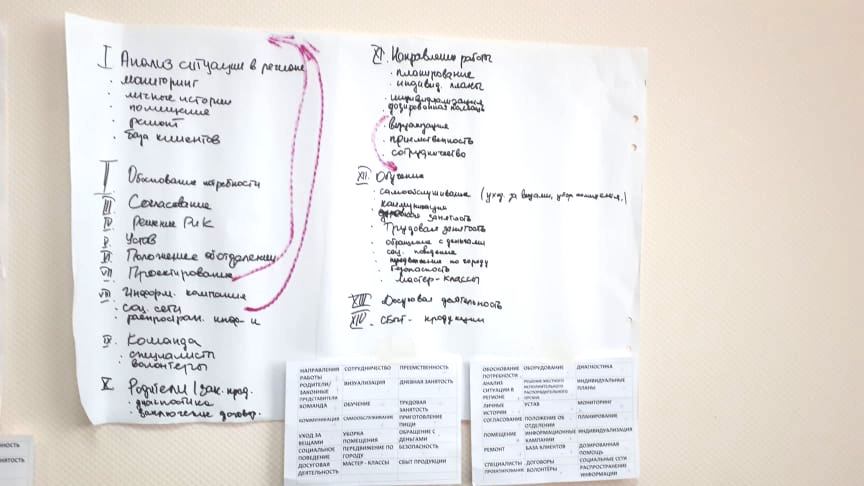 I Анализ ситуации в регионе
· мониторинг
· личные истории
· помещение
· ремонт
· база клиентов
II Обоснование потребности
III Согласование
IV Решение РИК
V Устав
VI Положение об отделении
VII Проектирование
VIII Информ. компания
· соц. сети
· распростран. инф-и
IX Команда
· специалисты
· волонтеры
X Родители / зак. пред.
· диагностика
· заключение договор.
XI Направления работы
· планирование
· индивид. планы
· индивидуализация
· дозированная помощь
· визуализация
· преемственность
· сотрудничество
XII Обучение
· самообслуживание (уход за вещами, убор. помещения,)
· коммуникация
занятость
· Трудовая занятость
· обращение с деньгами
· соц. поведение
· передвижение по городу
· безопасность
· мастер-классы
XIII Досуговая деятельность
XIV СБЫТ - продукции
НАПРАВЛЕНИЯ РАБОТЫ
СОТРУДНИЧЕСТВО
ПРЕЕМСТВЕННОСТЬ
РОДИТЕЛИ/ ЗАКОННЫЕ ПРЕДСТАВИТЕЛИ
ВИЗУАЛИЗАЦИЯ
ДНЕВНАЯ ЗАНЯТОСТЬ
КОМАНДА
ОБУЧЕНИЕ
ТРУДОВАЯ ЗАНЯТОСТЬ
КОММУНИКАЦИЯ
САМООБСЛУЖИВАНИЕ
ПРИГОТОВЛЕНИЕ ПИЩИ
УХОД ЗА ВЕЩАМИ
УБОРКА ПОМЕЩЕНИЯ
ОБРАЩЕНИЕ С ДЕНЬГАМИ
СОЦИАЛЬНОЕ ПОВЕДЕНИЕ
ПЕРЕДВИЖЕНИЕ ПО ГОРОДУ
БЕЗОПАСНОСТЬ
ДОСУГОВАЯ ДЕЯТЕЛЬНОСТЬ
МАСТЕР - КЛАССЫ
СБЫТ ПРОДУКЦИИ
ОБОСНОВАНИЕ ПОТРЕБНОСТИ
ОБОРУДОВАНИЕ
ДИАГНОСТИКА
АНАЛИЗ СИТУАЦИИ В РЕГИОНЕ
РЕШЕНИЕ МЕСТНОГО ИСПОЛНИТЕЛЬНОГО РАСПОРЯДИТЕЛЬНОГО ОРГАНА
ИНДИВИДУАЛЬНЫЕ ПЛАНЫ
ЛИЧНЫЕ ИСТОРИИ
УСТАВ
МОНИТОРИНГ
СОГЛАСОВАНИЕ
ПОЛОЖЕНИЕ ОБ ОТДЕЛЕНИИ
ПЛАНИРОВАНИЕ
ПОМЕЩЕНИЕ
ИНФОРМАЦИОННЫЕ КАМПАНИИ
ИНДИВИДУАЛИЗАЦИЯ
РЕМОНТ
БАЗА КЛИЕНТОВ
ДОЗИРОВАННАЯ ПОМОЩЬ
СПЕЦИАЛИСТЫ
ДОГОВОРЫ
СОЦИАЛЬНЫЕ СЕТИ
ПРОЕКТИРОВАНИЕ
ВОЛОНТЁРЫ
РАСПРОСТРАНЕНИЕ ИНФОРМАЦИИ